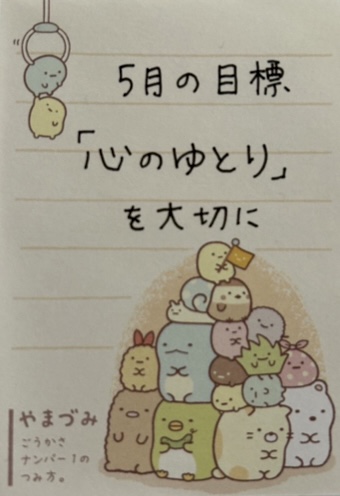 5月の目標
「心のゆとり」
を大切に
やまづみ
ごうかさ
ナンバー1の
つみ方。